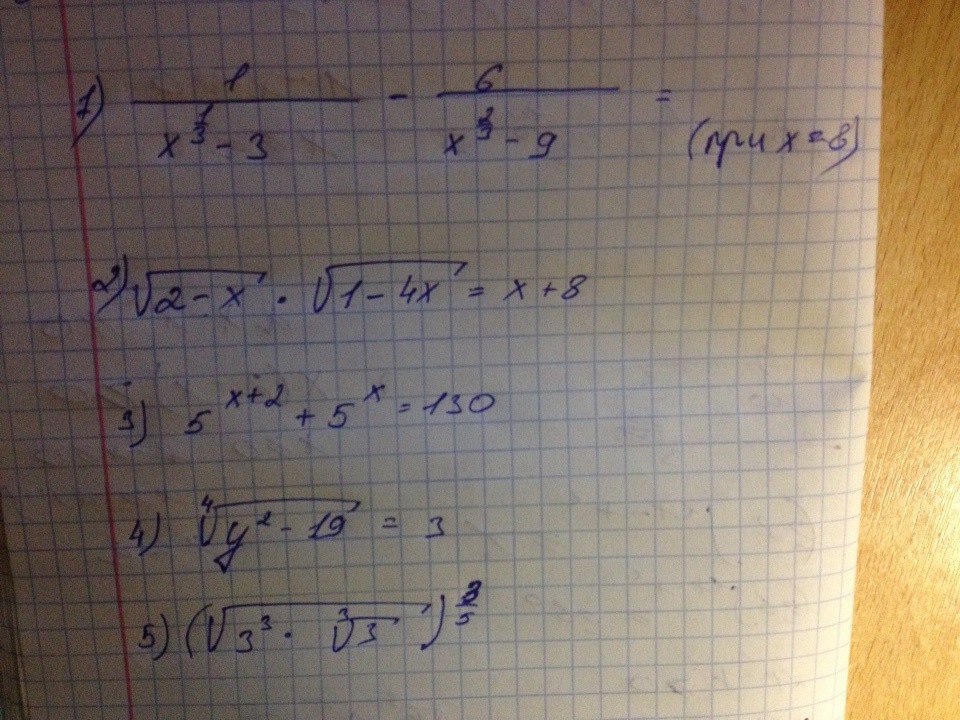 1) 1/(x^(1/3) - 3) - 6/(x^(2/3) - 9) = (при x = 8)
2) √(2 - x) · √(1 - 4x) = x + 8
3) 5^(x+2) + 5^x = 130
4) ⁴√(y² - 19) = 3
5) (√(3³ · ³√3))^(3/5)